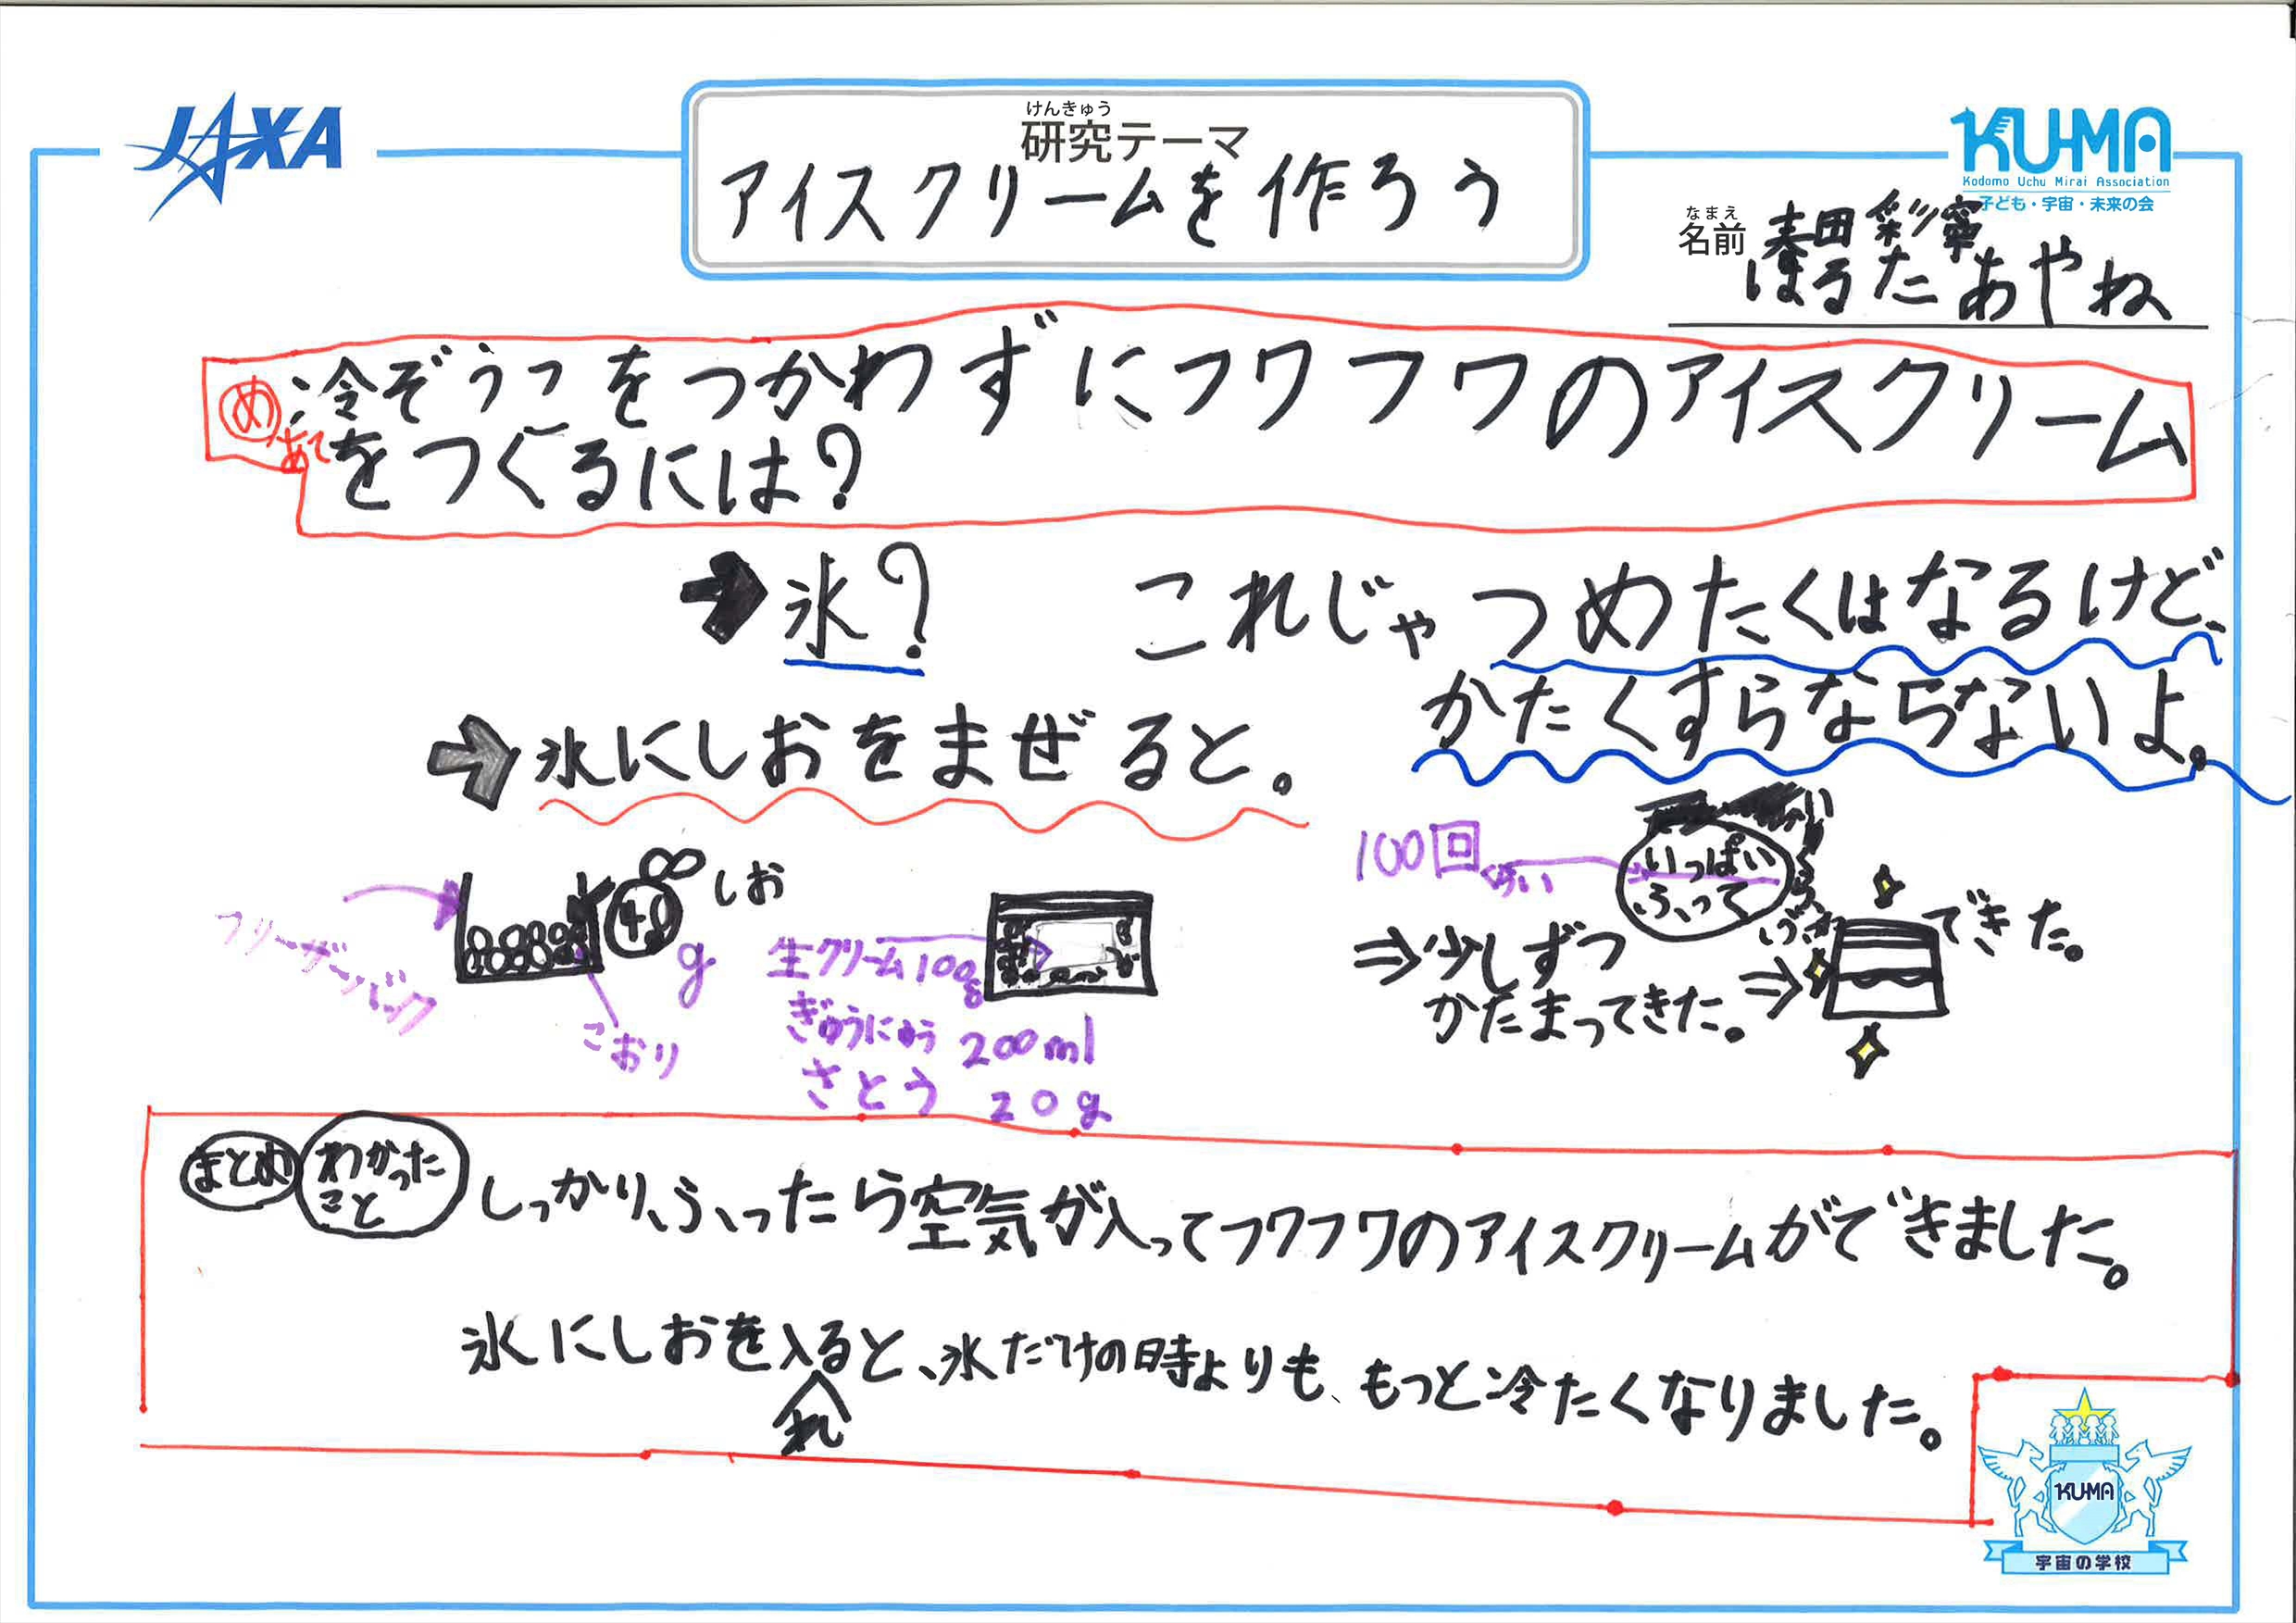 JAXA
けんきゅう
研究テーマ
アイスクリームを作ろう
KU-MA
Kodomo Uchu Mirai Association
子ども・宇宙・未来の会
なまえ
名前
春田 彩寧
はるた あやね
めあて:冷ぞうこをつかわずにフワフワのアイスクリーム
をつくるには?
氷?
これじゃつめたくはなるけど、
かたくすらならないよ。
氷にしおをまぜると。
フリーザーバック
40g
しお
こおり
生クリーム100g
ぎゅうにゅう 200ml
さとう 20g
100回
ぐらい
いっぱい
ふって
⇒少しずつ
かたまってきた。
⇒
できた。
まとめ
わかった
こと
しっかりふったら空気が入ってフワフワのアイスクリームができました。
氷にしおを入ると、氷だけの時よりも、もっと冷たくなりました。
れ
KU-MA
宇宙の学校